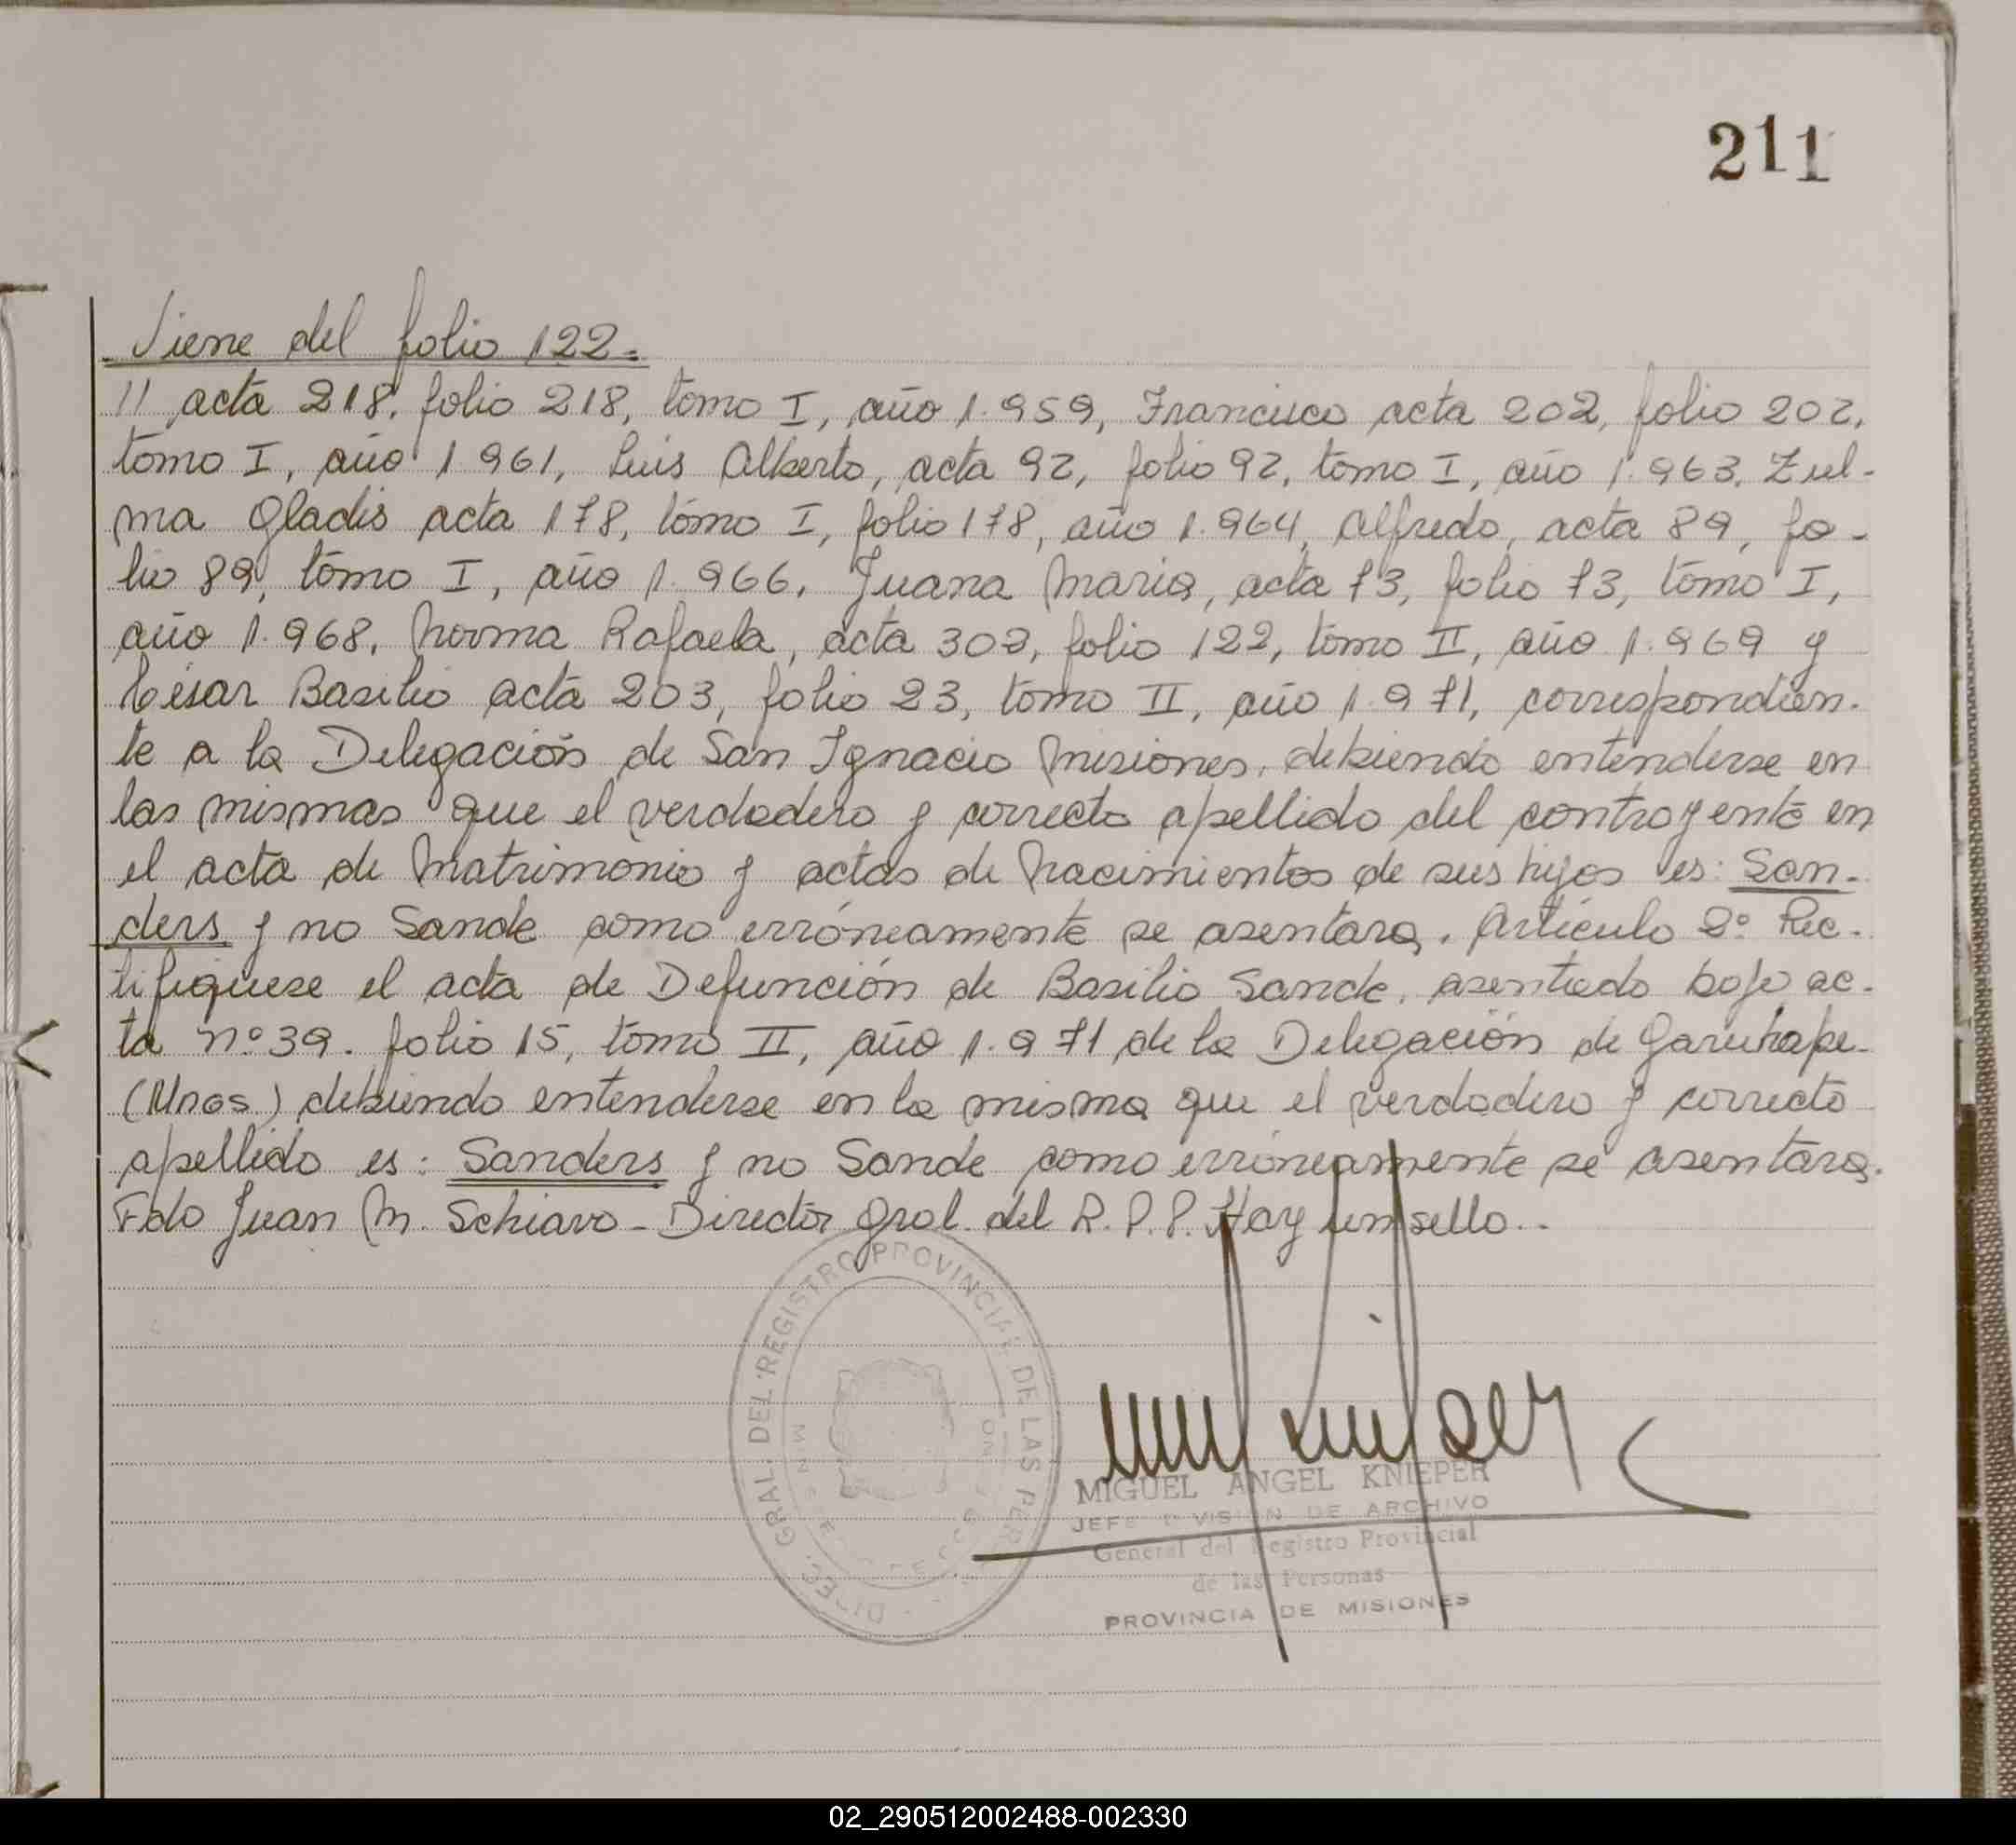 211
Viene del folio 122.
// acta 218, folio 218, tomo I, año 1.959, Francisco acta 202, folio 202,
tomo I, año 1961, Luis Alberto, acta 92, folio 92, tomo I, año 1.963, Zul-
ma Gladis acta 178, tomo I, folio 178, año 1.964, Alfredo, acta 89, fo-
lio 89, tomo I, año 1.966, Juana Maria, acta 73, folio 73, tomo I,
año 1.968, Norma Rafaela, acta 302, folio 122, tomo II, año 1.969 y
César Basilio acta 203, folio 23, tomo II, año 1.971, correspondien-
te a la Delegación de San Ignacio Misiones, debiendo entenderse en
las mismas que el verdadero y correcto apellido del contrayente en
el acta de Matrimonio y actas de Nacimientos de sus hijos es: San-
ders y no Sande como erróneamente se asentara. Artículo 2º Rec-
tifiquese el acta de Defunción de Basilio Sande, asentado bajo ac-
ta nº 39. folio 15, tomo II, año 1.971 de la Delegación de Garuhape-
(Mnes) debiendo entenderse en la misma que el verdadero y correcto
apellido es: Sanders y no Sande como erróneamente se asentara.
Fdo Juan M. Schiavo - Director Gral. del R.P.P. Hay un sello..
DIREC. GRAL. DEL REGISTRO PROVINCIAL DE LAS PER
MIGUEL ANGEL KNIEPER
JEFE DIVISION DE ARCHIVO
General del Registro Provincial
de las Personas
PROVINCIA DE MISIONES
02_290512002488-002330